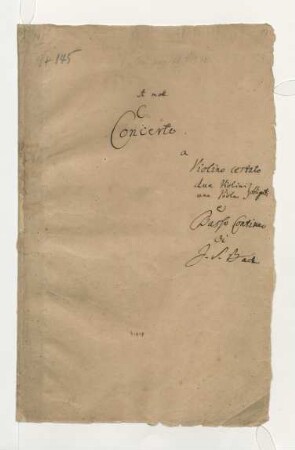 145
A moll
Concerto.
a
Violino certato
due Violini
una Viola obligati
e
Basso Continuo
di
J. S. Bach